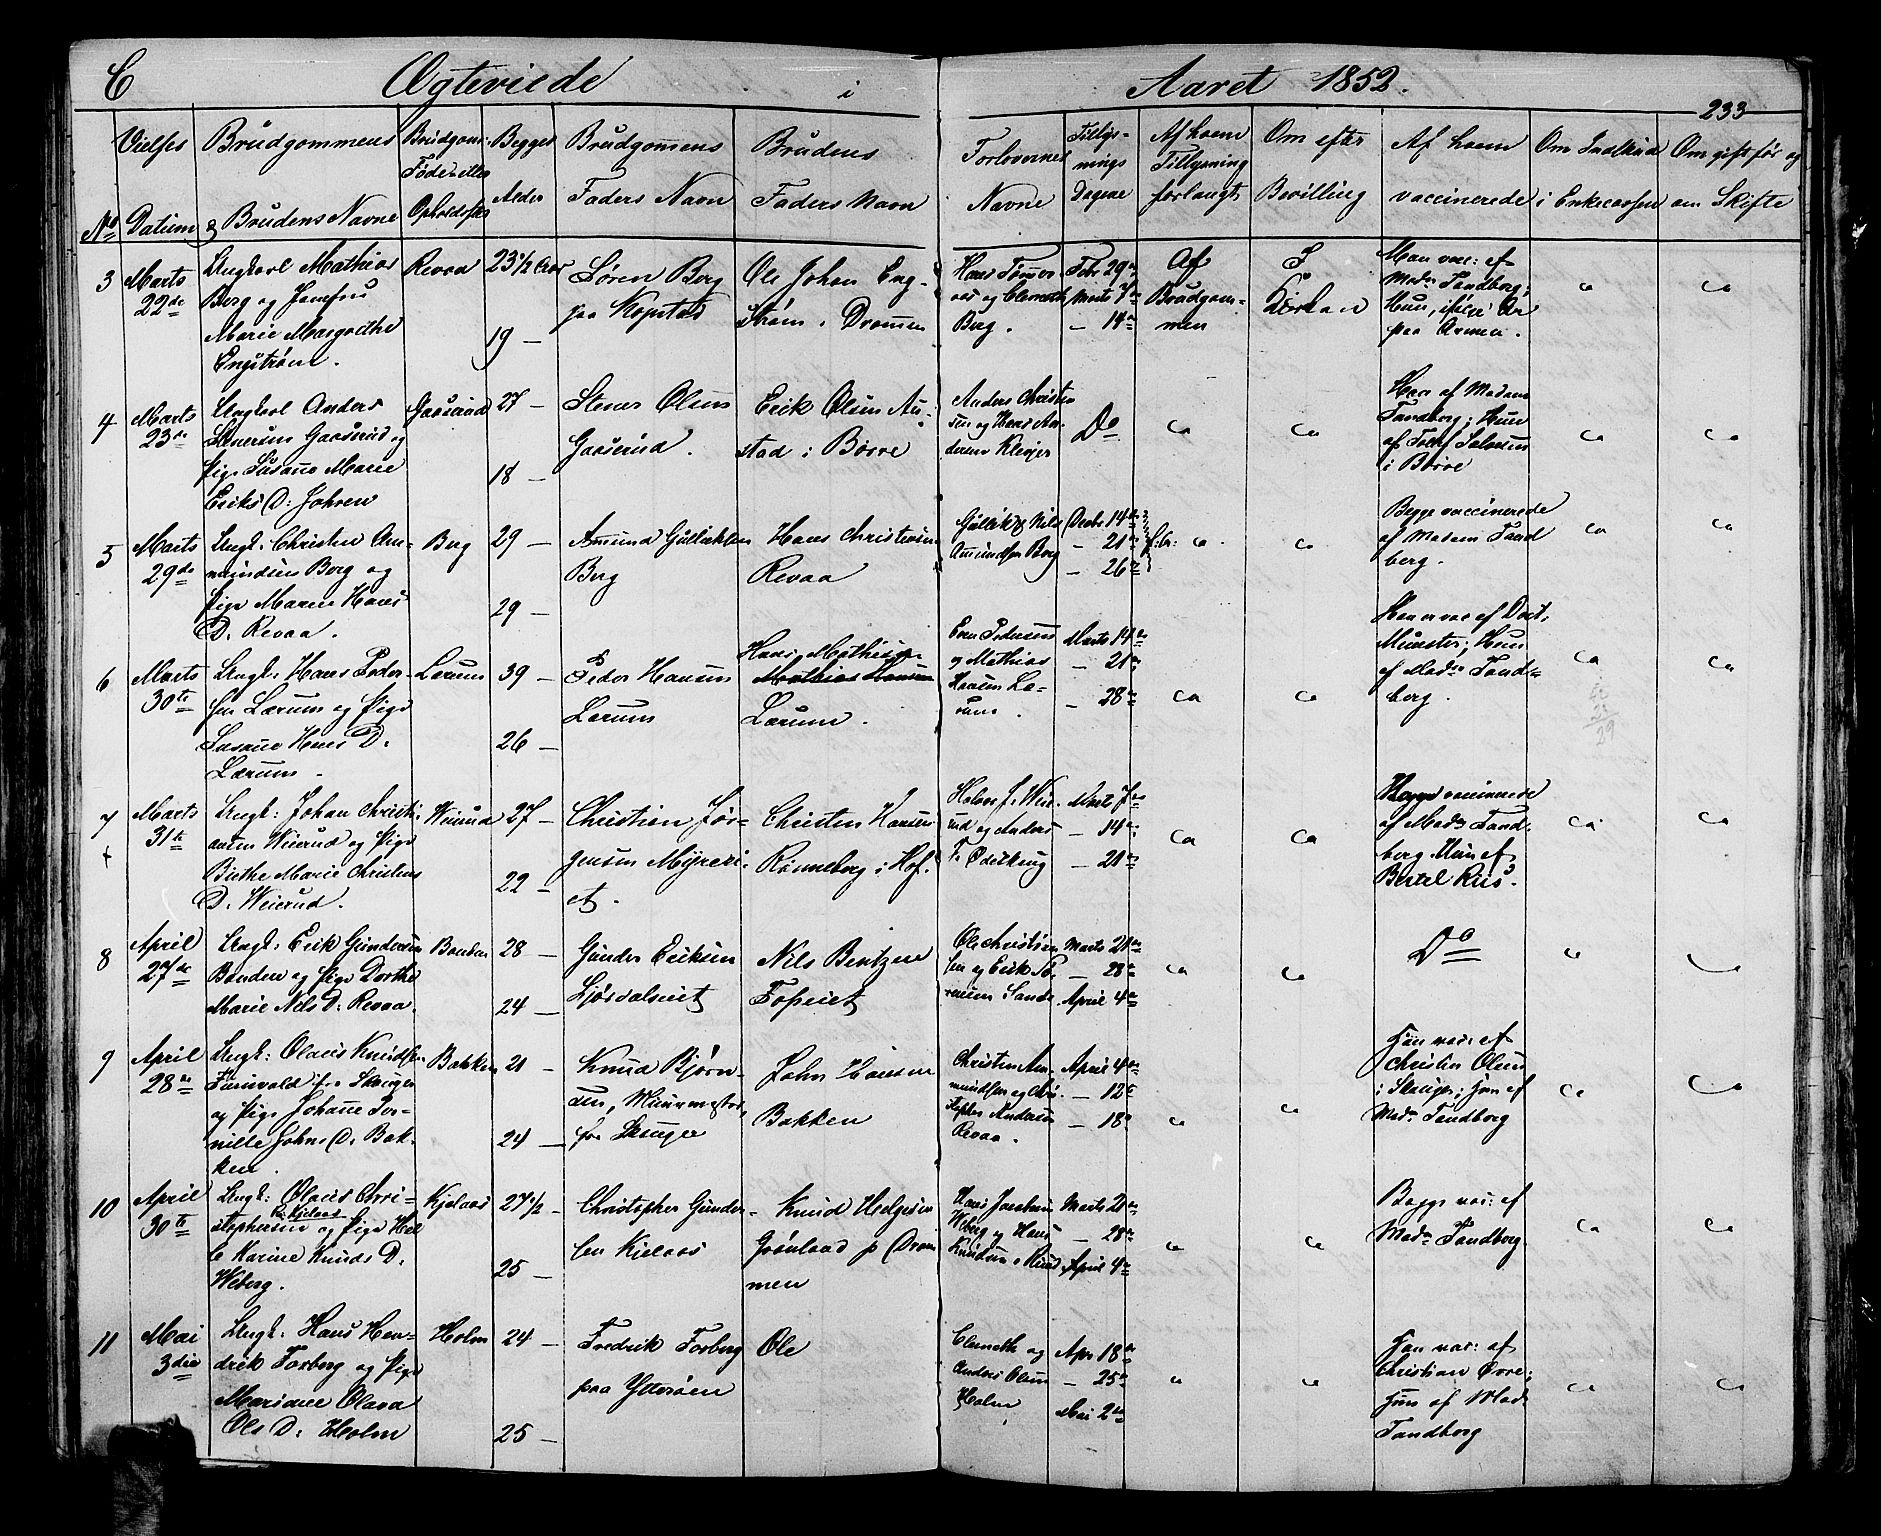 C Ægteviede i Aaret 1852.
233
No
Vielses Datum
Brudgommens & Brudens Navne
Brudgoms Fødested eller Opholdsst
Begges Alder
Brudgomens Faders Navn
Brudens Faders Navn
Forlovernes Navne
Tillysnings Dagene
Af hvem Tillysning forlangt
Om efter Bevilling
Af hvem vaccinerede
Om Indskud i Enkecassen
Om gift før og om Skifte
3
Marts 22de
Ungkarl Mathias
Berg og Jomfru
Marie Margrethe
Engstrøm.
Revaa
23 1/2 Aar
19 —
Søren Berg
paa Kopstad
Ole Johan Eng-
strøm i Dramen
Berg.
Febr 29de
Marts 7de
— 14de
Af
Brudgom-
men
I
Kirken
Man vac: af
Madm Tandberg;
Hun,
paa Armen.
4
Marts 23de
Ungkarl Anders
Stenersen Gaaserud og
Pige Susane Marie
Eriks D: Johren
Gaaserud
27 —
18 —
Stener Olsen
Gaaserud.
Erik Olsen Au-
stad i Borre
Anders Christen
sen og Hans An-
dersen Klever
Do
Han af Madam
Tandberg; Hun
af Tolef Salvesen
i Borre
5
Marts 29de
Ungk: Christen Am-
mundsen Berg og
Pige Maren Hans
D. Revaa.
Berg
29 —
29 —
Amund Gulliksen
Berg
Hans Christensen
Revaa
Gullik & Nils
Amundsen Berg
Decbr 14de
— 21de
— 26de
Begge vaccinerede
af Madam Tand
berg.
6
Marts 30te
Ungk: Hans Peder-
sen Lærum og Pige
Susane Hans D:
Lærum.
Lærum
39 —
26 —
Peder Hansen
Lærum
Hans Mathisen
Mathias Hansen
Lærum.
Even Pedersen
og Mathias
Hansen Læ-
rum.
Marts 14de
— 21de
— 28de
Han er vac af Doct:
Münster; Hun
af Madm Tand-
berg.
29
7
Marts 31te
Ungk: Johan Christi-
ansen Weierud og Pige
Birthe Marie Christens
D. Weierud.
Weierud
27 —
22 —
Christian Jør-
gensen Myreri-
et.
Christen Hansen
Rønneberg i Hof.
Holm J. Weie-
rud og Anders
Marts 7de
— 14de
— 21de
Begge vaccinerede
af Madm Tand-
berg. Hun af
Bertel Riis.
8
April 27de
Ungk: Erik Gundersen
Bonden og Pige Dorthe
Marie Nils D. Revaa.
Bonden
28 —
24 —
Gunder Eriksen
Ljøsdalseiet
Nils Bentzen
Fopeiet
Ole Christian
sen og Erik Sø-
rensen Sande
Marts 21de
— 28de
April 4de
Do
9
April 28de
Ungk: Olaus Knudsen
Furuvald fra Skouger
og Pige Johane Per-
nille Johns D. Bak-
ken.
Bakken
21 —
24 —
Knud Bjørn-
sen, Muurmester,
fra Skouger
John Hansen
Bakken
Christen Am-
mundsen og Chri-
stopher Andersen
Revaa.
April 4de
— 12te
— 18de
Han vac: af
Christen Olsen
i Skouger; Hun af
Madm Tandberg
10
April 30te
Ungk: Olaus Chri-
stophersen Kjelaas og Pige Hel
e Karine Knuds D.
Weberg.
Kjelaas
27 1/2
25 —
Christopher Gunder-
sen Kjelaas
Knud Helgesen
Grønland p Dram
men
Hans Jacobsen
Weberg og Hans
Knudsen
Marts 21de
— 28de
April 4de
Begge vac: af
Madm Tandberg.
11
Mai 3die
Ungk: Hans Hen-
drik Forberg og Pige
Mariane Olava
Ols D: Holm
Holm
24 —
25 —
Fredrik Forberg
paa Ytterøen
Ole
Clemeth og
Anders Olsen
Holm
Apr 18de
— 25de
Mai 2den
Han vac: af
Christian Øvre;
Hun af Mad
Tandberg